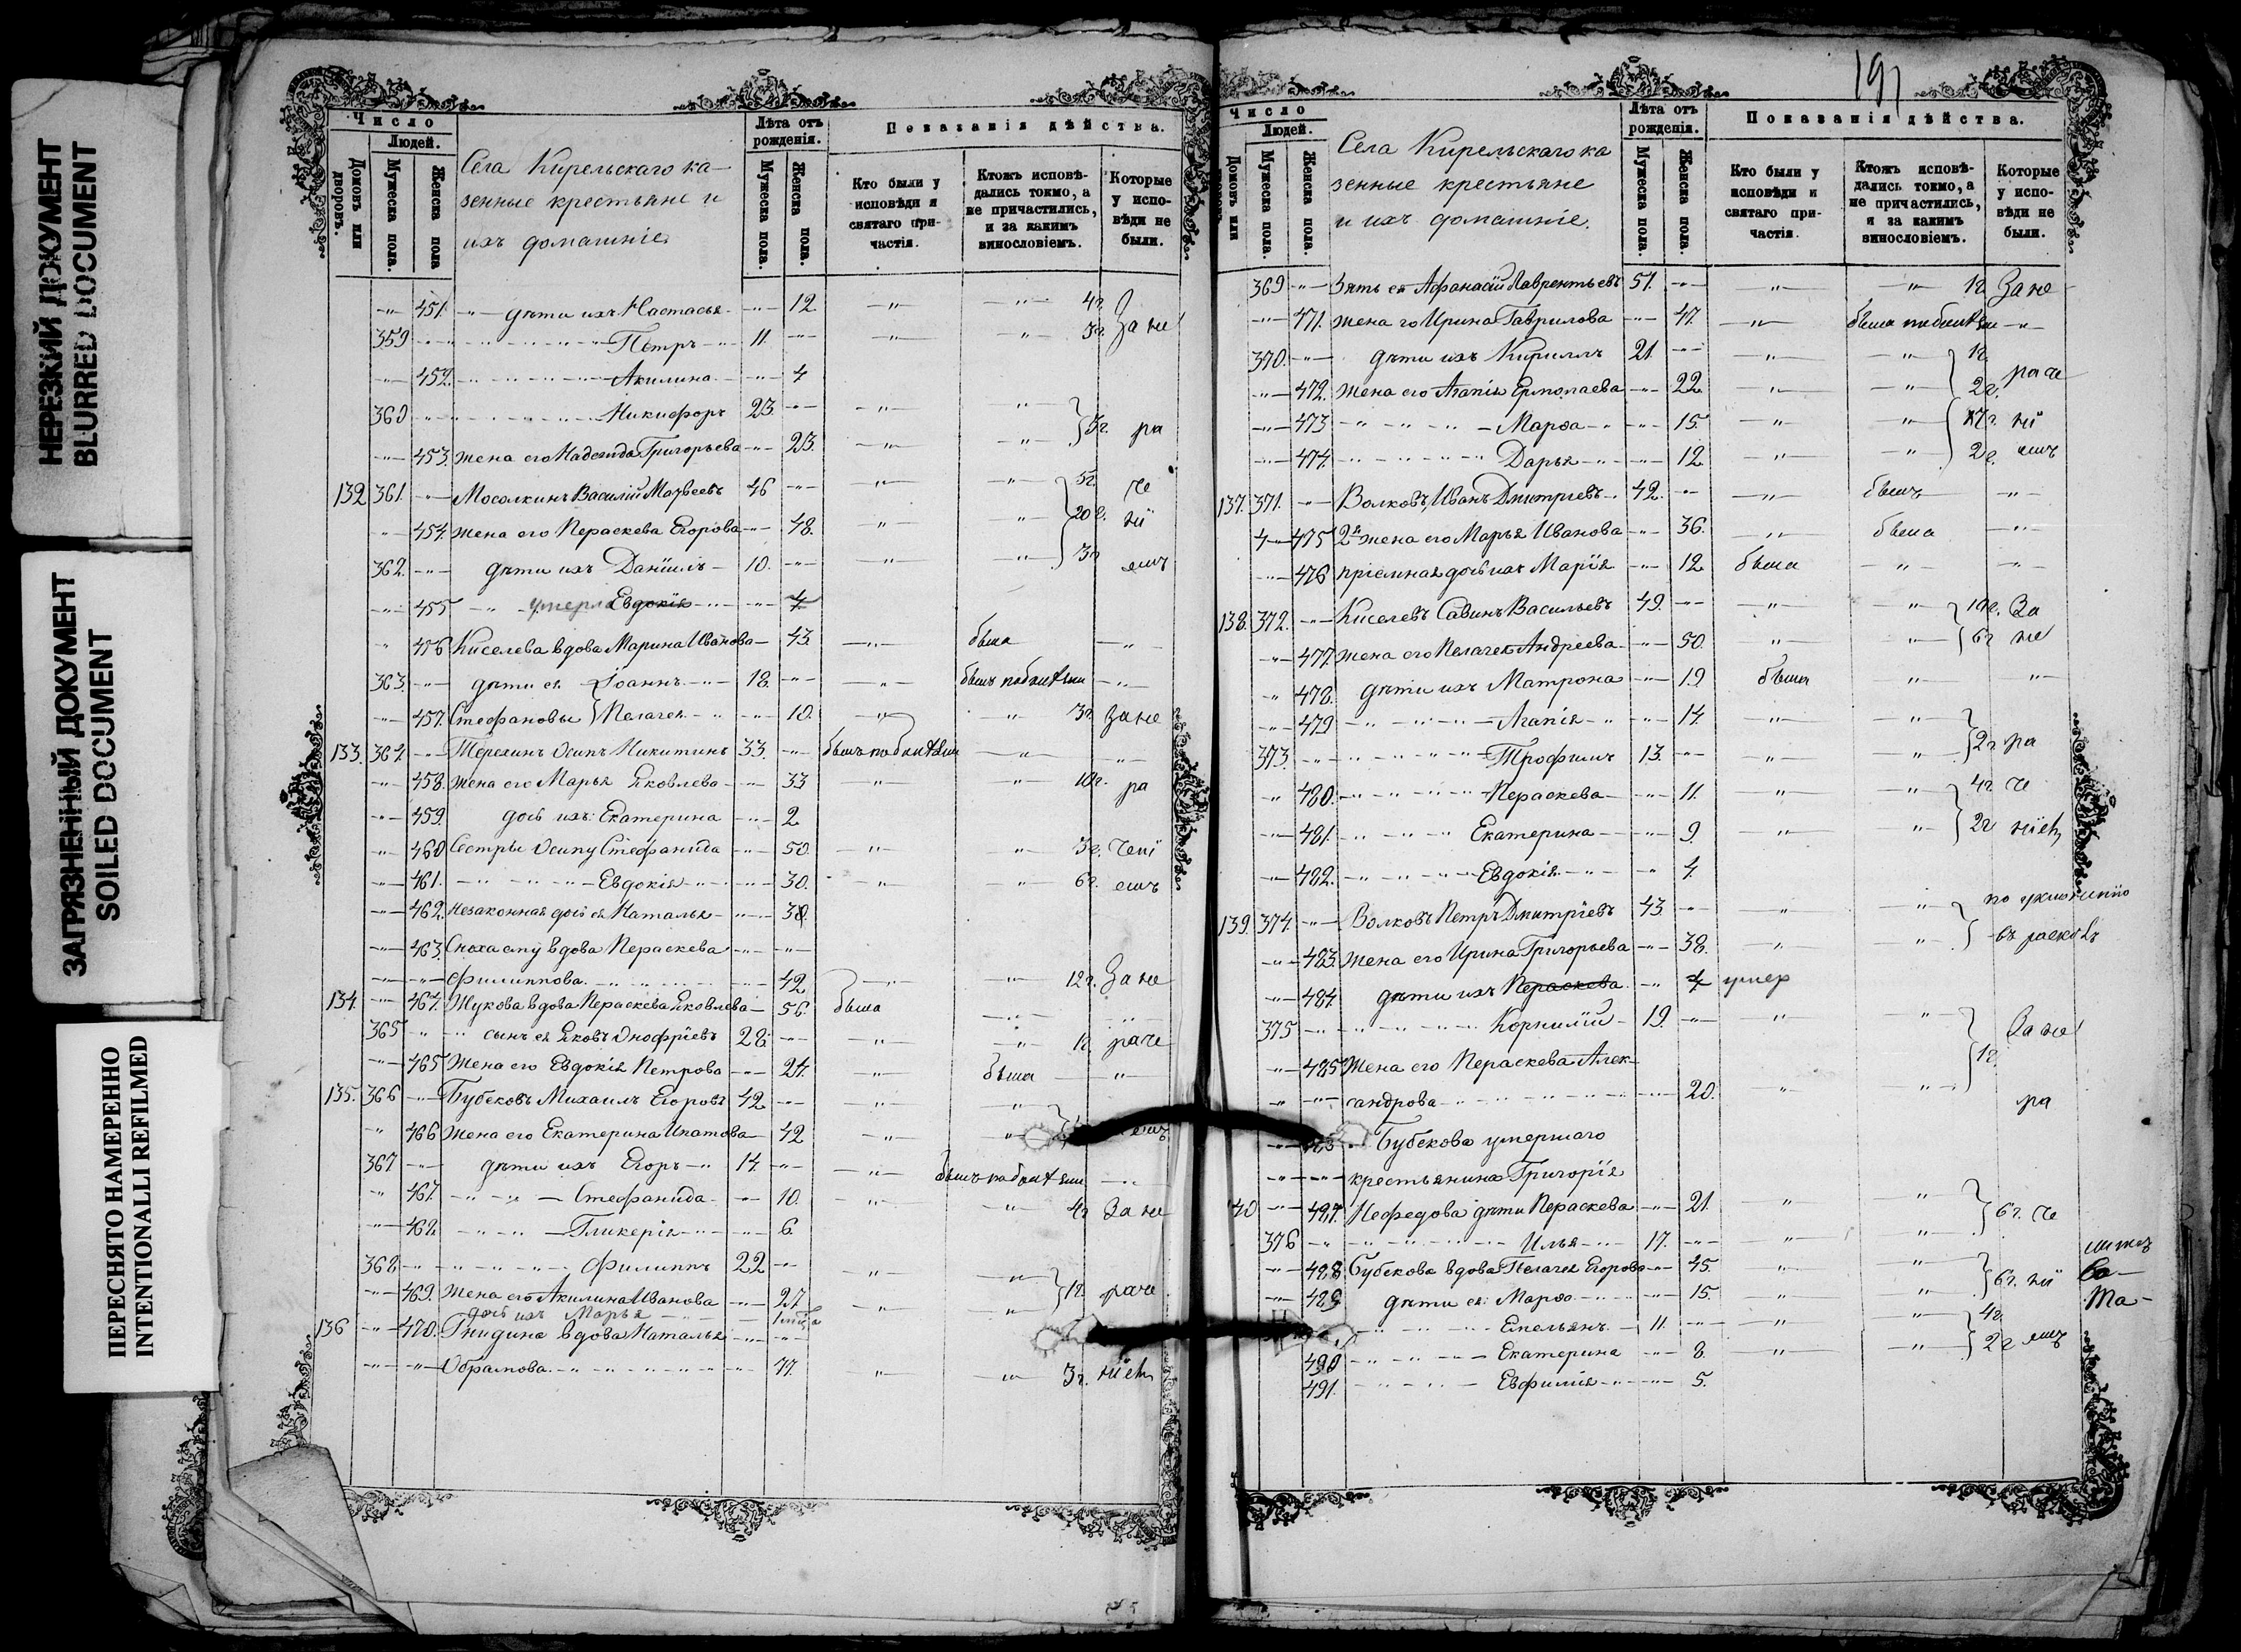 НЕРЕЗКИЙ ДОКУМЕНТ
BLURRED DOCUMENT
ЗАГРЯЗНЕННЫЙ ДОКУМЕНТ
SOILED DOCUMENT
ПЕРЕСНЯТО НАМЕРЕННО
INTENTIONALLI REFILMED
Число
Людей.
Домовъ или дворовъ.
Мужеска пола.
Женска пола
Села Кирельскаго ка-
зенные крестьяне и
ихъ домашніе
Лѣта отъ рожденія.
Мужеска пола.
Женска пола.
Показанія дѣйства.
Кто были у исповѣди и святаго при-частія.
Ктожъ исповѣ-дались токмо, а не причастились, и за какимъ винословіемъ.
Которые у испо-вѣди не были.
451. дѣти ихъ Настасья 12 4г. За не
359 Петръ 11. 3г.
452. Акилина 4
360 Никифоръ 23
453. жена его Надежда Григорьева 23. 3г. ра
132. 361. Мосолкинъ Василій Матвеевъ 46 5г. че
454. жена его Пераскева Егорова 48. 20 г. нї
362. дѣти ихъ Данїилъ 10. 3г. емъ
455 умерла Евдокія 4
456 Киселева вдова Марина Иванова 43. была
363. дѣти ея Іоаннъ 18. былъ
457. Стефановы Пелагея 10. 3г. За не
133. 364. Терехинъ Осипъ Никитинъ 33. былъ
458. жена его Марья Яковлева 33 10г. ра
459. дочь ихъ Екатерина 2
460 Сестры Осипу Стефанида 50. 3г. ченї
461. Евдокія 30. 6г. емъ
462. незаконная дочь ея Наталья
463. Сноха ему вдова Пераскева
Филиппова 42. 12г. За не
134. 464. Жукова вдова Пераскева Яковлева 56. была
365 сынъ ея Яковъ Онофріевъ 28. 1г. раче
465 Жена его Евдокія Петрова 24. была
135. 366 Бубековъ Михаилъ Егоровъ 42
466 Жена его Екатерина Ипатова 42 емъ
367 дѣти ихъ Егоръ 14. былъ
467. Стефанида 10. 4г. За не
468. Гликерія 6.
368 Филиппъ 22
469. Жена его Акилина Иванова 27 1г. раче
дочь ихъ Марья
136 470. Гнидина вдова Наталья
Обрамова 77. 3г. нїемъ
191
Число
Людей.
Домовъ или
Мужеска пола.
Женска пола.
Села Кирельскаго ка
зенные крестьяне
и ихъ домашніе.
Лѣта отъ рожденія.
Мужеска пола.
Женска пола.
Показанія дѣйства.
Кто были у исповѣди и святаго при-частія.
Ктожъ исповѣ-дались токмо, а не причастились, и за какимъ винословіемъ.
Которые у испо-вѣди не были.
369 Зять ея Афанасій Лаврентьевъ 51. 1г. За не
471. жена го Ирина Гаврилова 47. была
370. дѣти ихъ Кириллъ 21. 1г.
472. Жена его Агапія Ермолаева 22. 2г. раче
473 Марѳа 15. нї
474. Дарья 12. 2г. емъ
137. 371. Волковъ Иванъ Дмитріевъ 42. былъ
475 2я жена его Марья Иванова 36. была
476 пріемная дочь ихъ Марїя 12. была
138. 372. Киселевъ Савинъ Васильевъ 49. За
477. Жена его Пелагея Андреева 50. 6г. не
478. дѣти ихъ Матрона 19 была
479 Агапія 14.
373. Трофимъ 13. 2г. ра
480. Пераскева 11. 4г. че
481. Екатерина 9. 2г. нїемъ
482. Евдокія 4.
139. 374. Волковъ Петръ Дмитріевъ 43. по уклоненію
483. Жена его Ирина Григорьева 38. въ расколъ
484. дѣти ихъ Пераскева 4 умер
375 Корнилій 19. За не
485 Жена его Пераскева Алек-
сандрова 20. 1г. ра
Бубекова умершаго
крестьянина Григорїя
140 487. Нефедова дѣти Пераскева 21. 6г. че
376 Илья 17.
488 Бубекова вдова Пелагея Егорова 45. 6г. нї
489 дѣти ея Марѳа 15.
Емельянъ 11. 4г.
490 Екатерина 8. 2г. емъ
491. Евфимія 5.